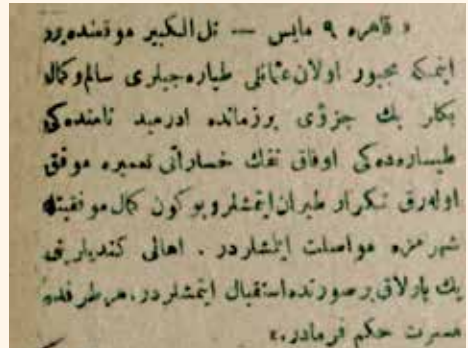 « قاهره ٩ مايس — تل الكبير موقعنده يره
اينمكه مجبور اولان عثمانلى طياره جيلرى سالم وكمال
بكلر پك جزؤى برزمانده ادرميد نامنده كى
طياره ده كى اوفاق تفك خساراتى تعميره موفق
اوله رق تكرار طيران ايتمشلر و بوكون كمال موفقيتله
شهرمزه مواصلت ايلمشلردر . اهالى كنديلرينى
پك پارلاق برصورتده استقبال ايتمشلردر، هر طرفده
مسرت حكم فرمادر.»